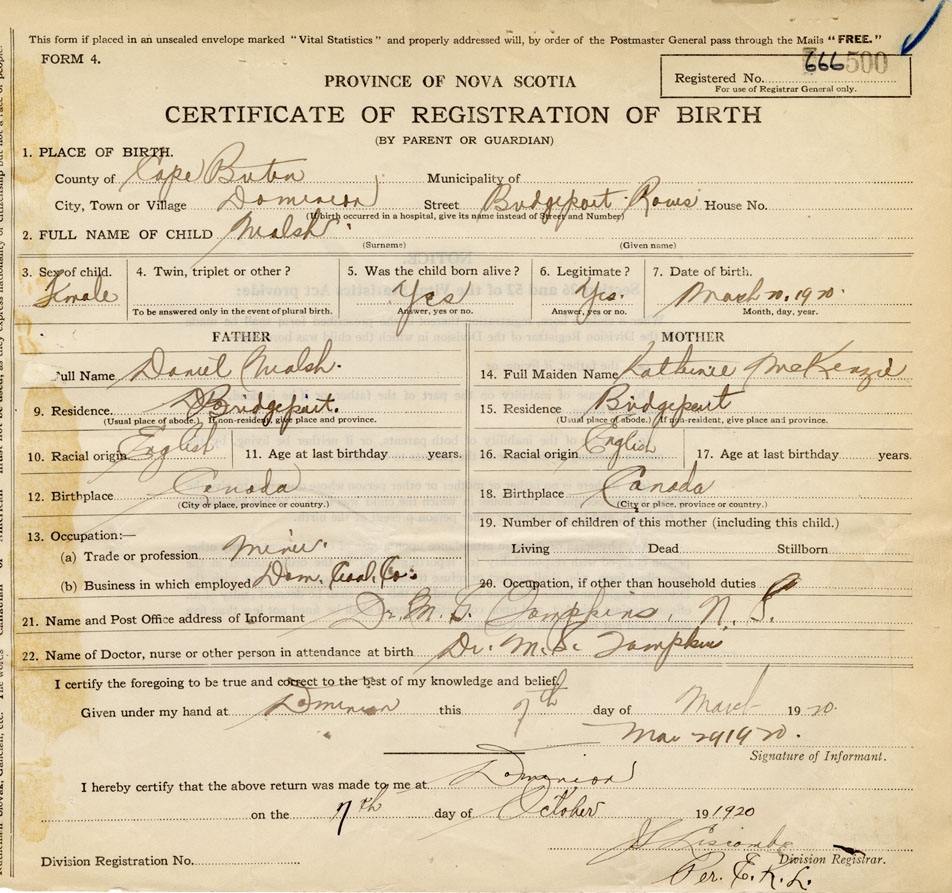 This form if placed in an unsealed envelope marked "Vital Statistics" and properly addressed will, by order of the Postmaster General pass through the Mails "FREE."
FORM 4.
666500
Registered No.
For use of Registrar General only.
PROVINCE OF NOVA SCOTIA
CERTIFICATE OF REGISTRATION OF BIRTH
(BY PARENT OR GUARDIAN)
1. PLACE OF BIRTH.
County of Cape Breton Municipality of
City, Town or Village Dominion Street Bridgeport Rows House No.
(If birth occurred in a hospital, give its name instead of Street and Number)
2. FULL NAME OF CHILD Walsh
(Surname) (Given name)
3. Sex of child. 4. Twin, triplet or other? 5. Was the child born alive? 6. Legitimate? 7. Date of birth.
Female Yes Yes. March 1920.
To be answered only in the event of plural birth. Answer, yes or no. Answer, yes or no. Month, day, year.
FATHER MOTHER
Full Name Daniel Walsh. 14. Full Maiden Name Katherine McKenzie
9. Residence. Bridgeport. 15. Residence Bridgeport
(Usual place of abode.) If non-resident, give place and province. (Usual place of abode.) If non-resident, give place and province.
10. Racial origin English 11. Age at last birthday years. 16. Racial origin English 17. Age at last birthday years.
12. Birthplace Canada 18. Birthplace Canada
(City or place, province or country.) (City or place, province or country.)
13. Occupation:— 19. Number of children of this mother (including this child.)
(a) Trade or profession Miner. Living Dead Stillborn
(b) Business in which employed Dom. Coal. Co. 20. Occupation, if other than household duties
21. Name and Post Office address of Informant Dr. M. Tompkins, N. S.
22. Name of Doctor, nurse or other person in attendance at birth Dr. M. Tompkins
I certify the foregoing to be true and correct to the best of my knowledge and belief.
Given under my hand at Dominion this day of March 1920.
Mar 29 1920.
Signature of Informant.
I hereby certify that the above return was made to me at Dominion
on the 7th day of October 19 1920
Liscombe
Division Registration No. Division Registrar.
Per. E. R. L.